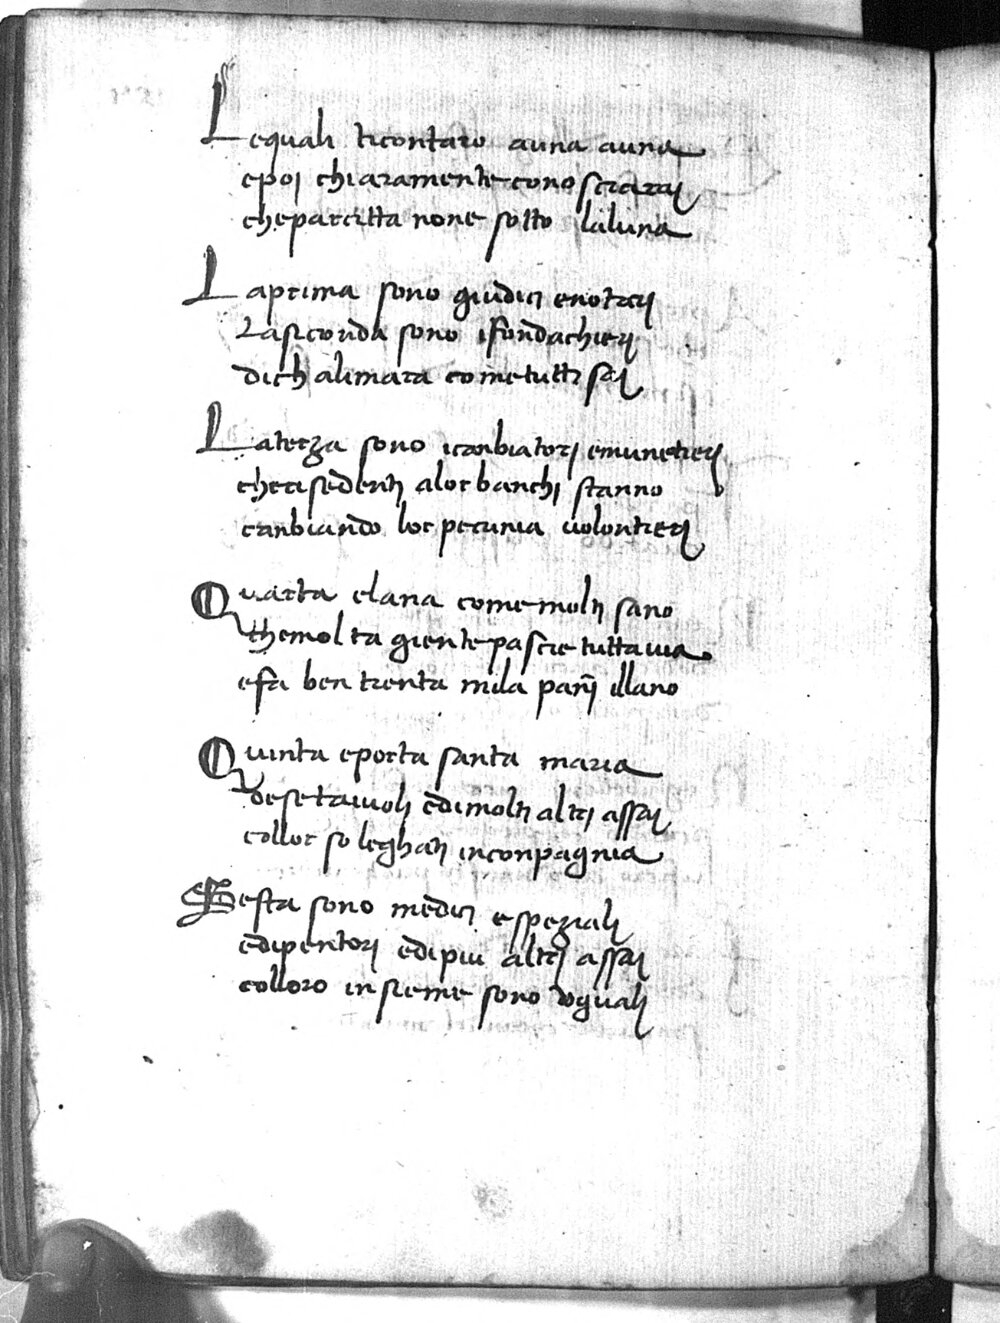 Lequali ticontaro auna auna
epoi chiaramente conosciarai
cheparcitta none sotto laluna
Laprima sono giudici enotari
Lasiconda sono ifondachieri
dich alimara cometutti sai
Laterza sono icanbiatori emunetieri
chetisedenti alor banchi stanno
canbiando lor pecunia uolontieri
Quarta elana come molti sano
chemolta giente pascie tuttauia
efa ben trenta mila panni illano
Quinta eporta santa maria
desetaiuoli edimolti altri assai
collor so leghati inconpagnia
Sesta sono medici espeziali
edipentori edipiu altri assai
colloro insieme sono oguali